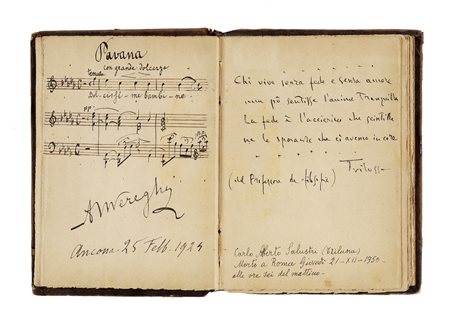 Pavana
con grande dolcezza
tenuto
pp
Ancona - 25 Febb. 1924
Chi vive senza fede e senza amore
nun pò sentisse l'anima tranquilla
La fede è l'acciarino che scintilla
ne le speranze che ciavemo in core
Trilussa
(dal Professore de filosofia)
Carlo Alberto Salustri (Trilussa)
Morto a Roma Giovedì 21-XII-1950
alle ore sei del mattino.